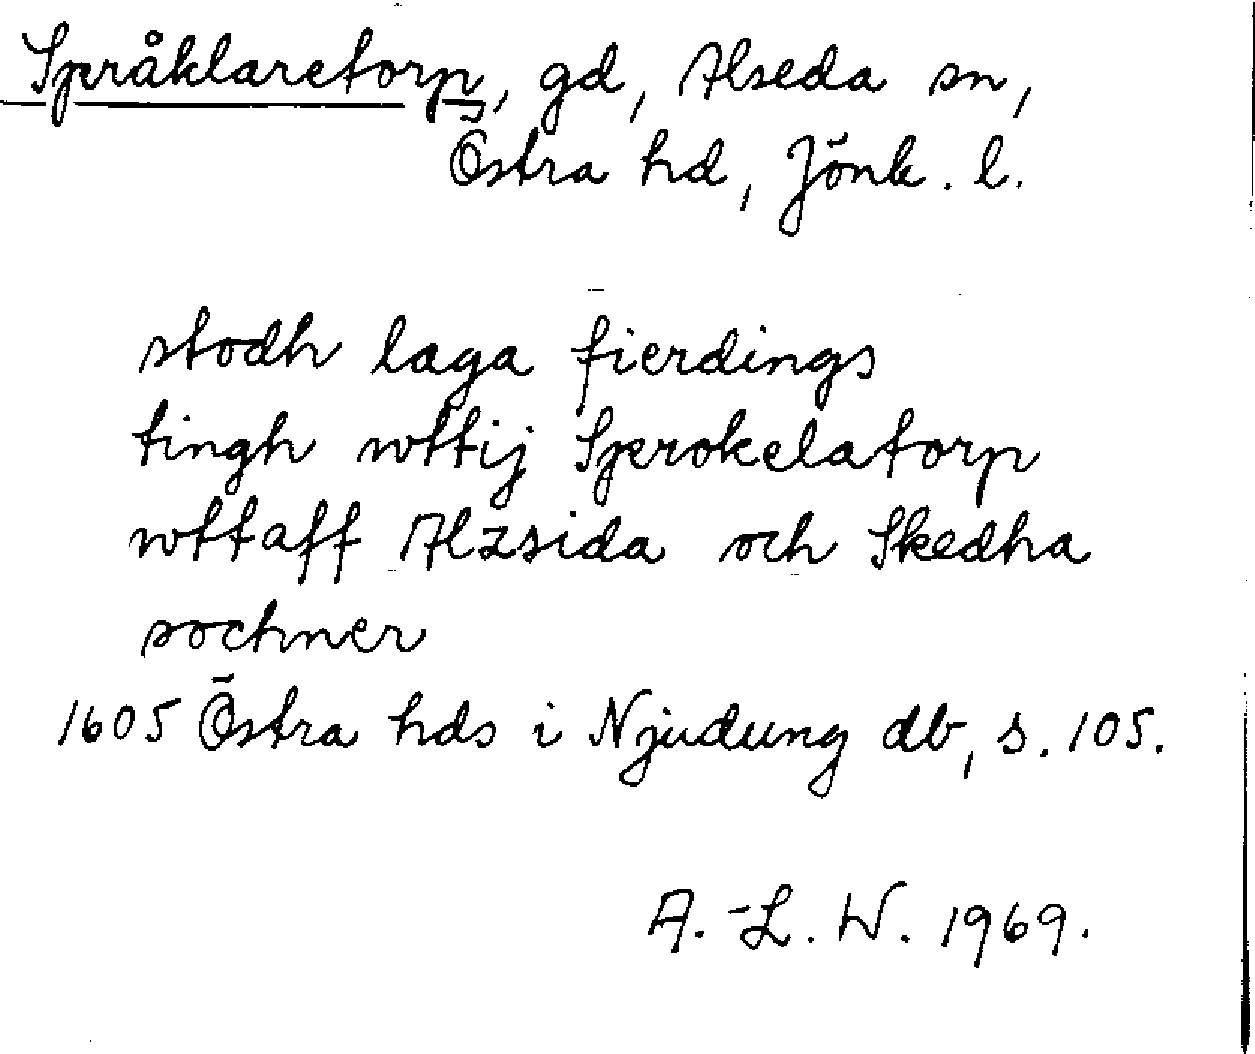 Språklaretorp, gd, Alseda sn,
Östra hd, Jönk. l.
stodh laga fierdings
tingh wttij Sprokelatorp
wttaff Alzsida och Skedha
sochner
1605 Östra hds i Njudung db, s. 105.
A.-L. W. 1969.